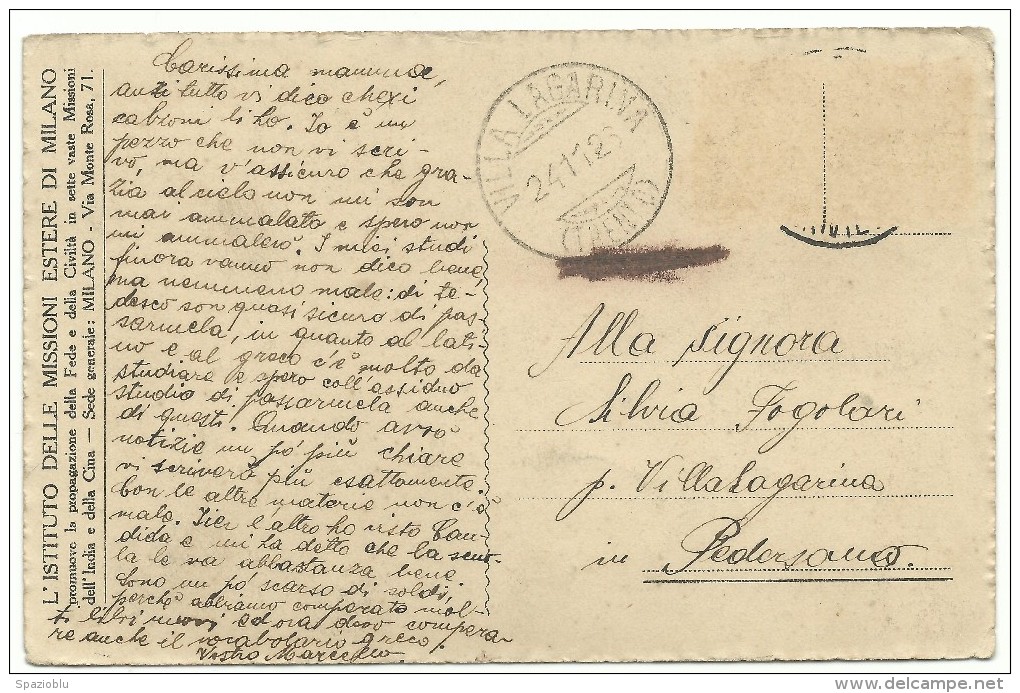 L'ISTITUTO DELLE MISSIONI ESTERE DI MILANO
promuove la propagazione della Fede e della Civiltà in sette vaste Missioni
dell'India e della Cina — Sede generale: MILANO - Via Monte Rosa, 71.
Carissima mamma,
anzi tutto vi dico che i
calzoni li ho. Io è un
pezzo che non vi scri-
vo, ma v'assicuro che gra-
zia al cielo non mi son
mai ammalato e spero non
mi ammalerò. I miei studi
finora vanno non dico bene,
ma nemmeno male: di te-
desco son quasi sicuro di pas-
sarmela, in quanto al lati-
no e al greco c'è molto da
studiare e spero coll'assiduo
studio di passarmela anche
di questi. Quando avrò
notizie un pò più chiare
vi scriverò più esattamente.
Con le altre materie non c'è
male. Ieri l'altro ho visto Can-
dida e mi ha detto che la scuo-
la le va abbastanza bene.
Sono un pò scarso di soldi,
perchè abbiamo comperato mol-
ti libri nuovi ed ora devo compera-
re anche il vocabolario greco.
Vostro Marcello.
VILLA LAGARINA
24.11.26
(TRENTO)
Alla signora
Silvia Fogolari
p. VillaLagarina
in Pedersano.
© Spazioblu
delcampe.net